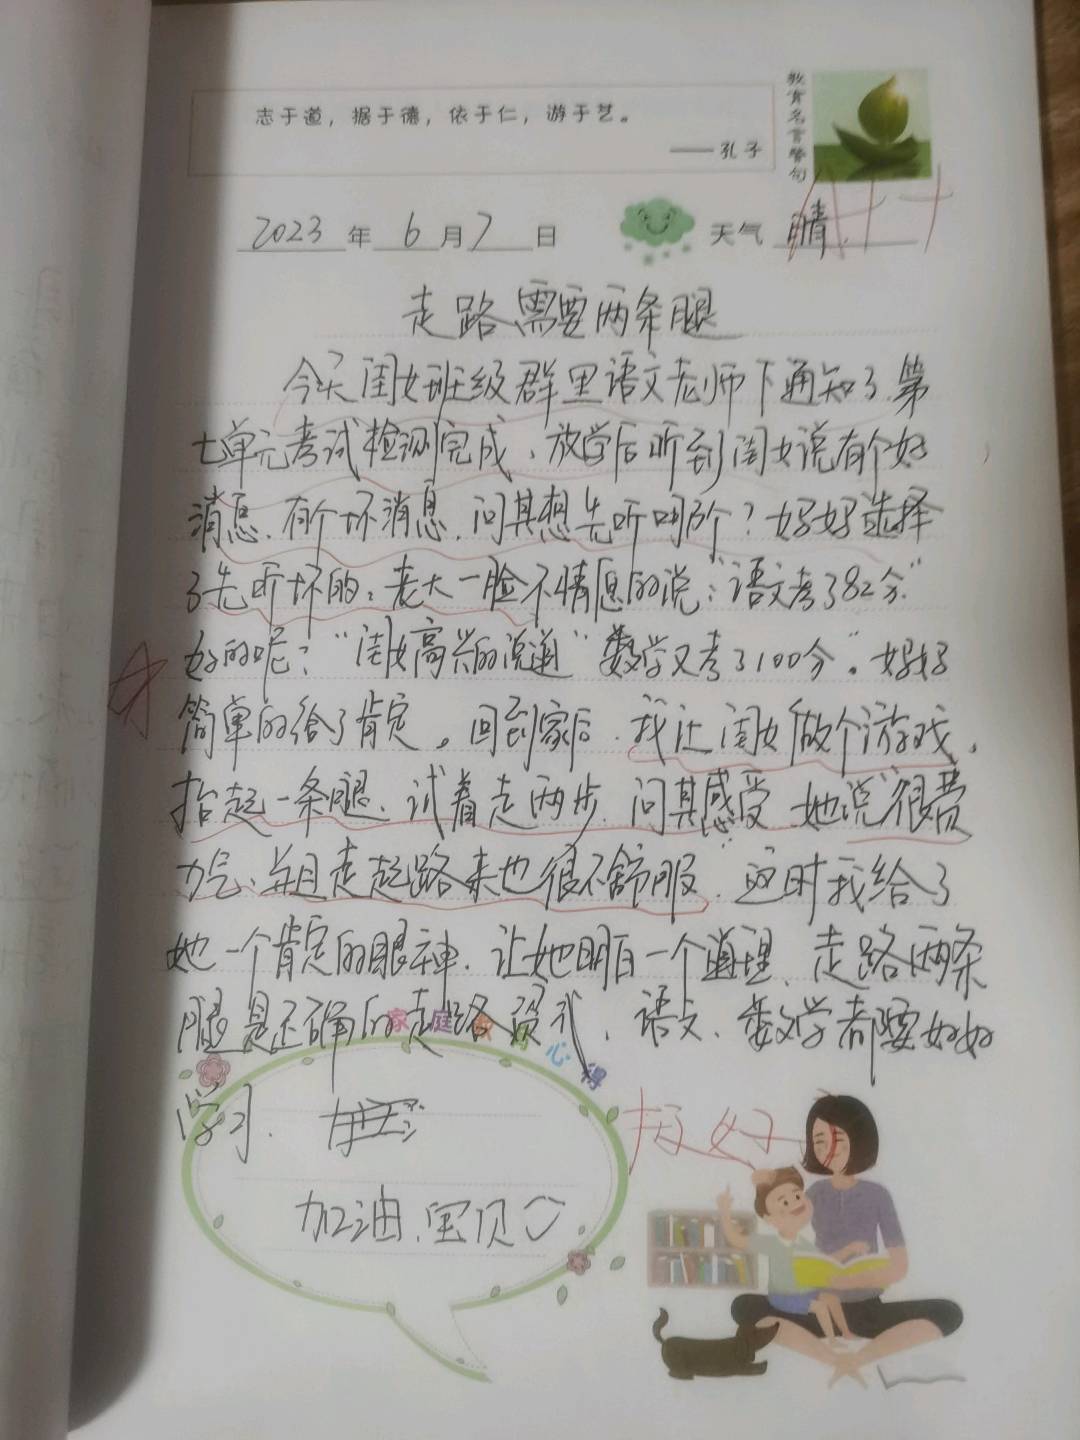 志于道，据于德，依于仁，游于艺。
——孔子
教育名言警句
2023年6月7日 天气 晴
走路需要两条腿
今天闺女班级群里语文老师下通知了,第
七单元考试检测完成,放学后听到闺女说有个好
消息,有个坏消息,问其想先听哪个?妈妈选择
了先听坏的,老大一脸不情愿的说:"语文考了82分"
好的呢?"闺女高兴的说道"数学又考了100分"。妈妈
简单的给了肯定。回到家后,我让闺女做个游戏,
抬起一条腿,试着走两步,问其感受,她说"很费
力气,并且走起路来也很不舒服,这时我给了
她一个肯定的眼神,让她明白一个道理,走路两条
腿是正确的走路姿式,语文、数学都要好好
家庭教育心得
学习.
加油,宝贝